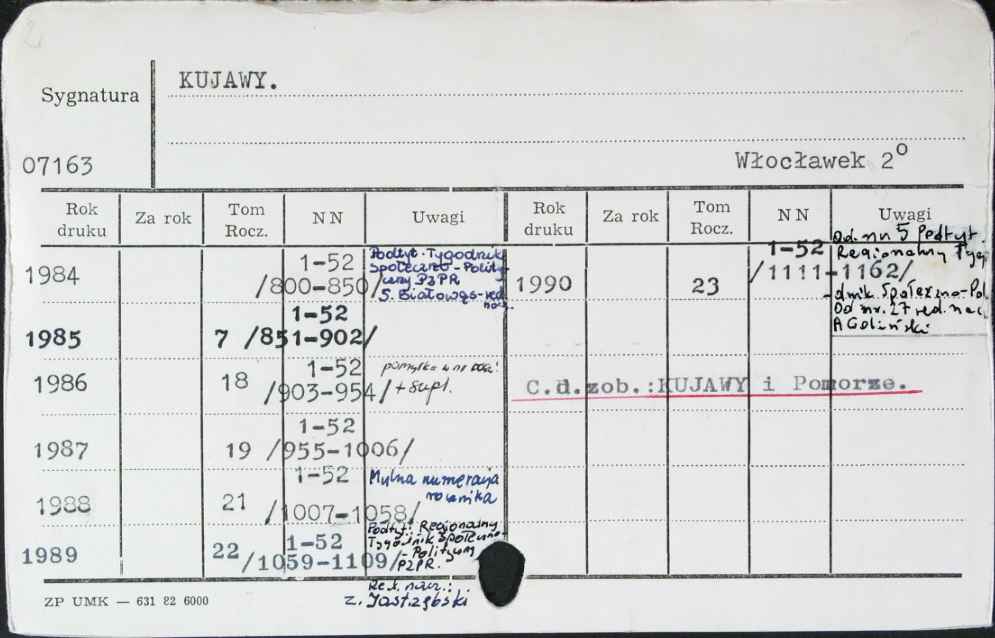 KUJAWY.
Sygnatura
07163
Włocławek 2º
Rok druku Za rok Tom Rocz. NN Uwagi Rok druku Za rok Tom Rocz. NN Uwagi
1984 1-52 /800-850/ Podtyt. Tygodnik
społeczno-Polity
czny PZPR
S. Białowąs-red
nacz.
1985 7 1-52 /851-902/
1986 18 1-52 /903-954/ pomyłka w nr
+ supl.
1987 19 1-52 /955-1006/
1988 21 1-52 /1007-1058/ Mylna numeracja
rocznika
1989 22 1-52 /1059-1109/ Podtyt. Regionalny
Tygodnik Społeczno
- Polityczny
PZPR.
Red. nacz.:
Z. Jastrzębski
1990 23 1-52 /1111-1162/ Od nr. 5 Podtyt.
Regionalny Tygo
dnik Społeczno-Pol
Od nr. 27 red. nac.
A Goliński
C.d.zob.:KUJAWY i Pomorze.
ZP UMK — 631 82 6000